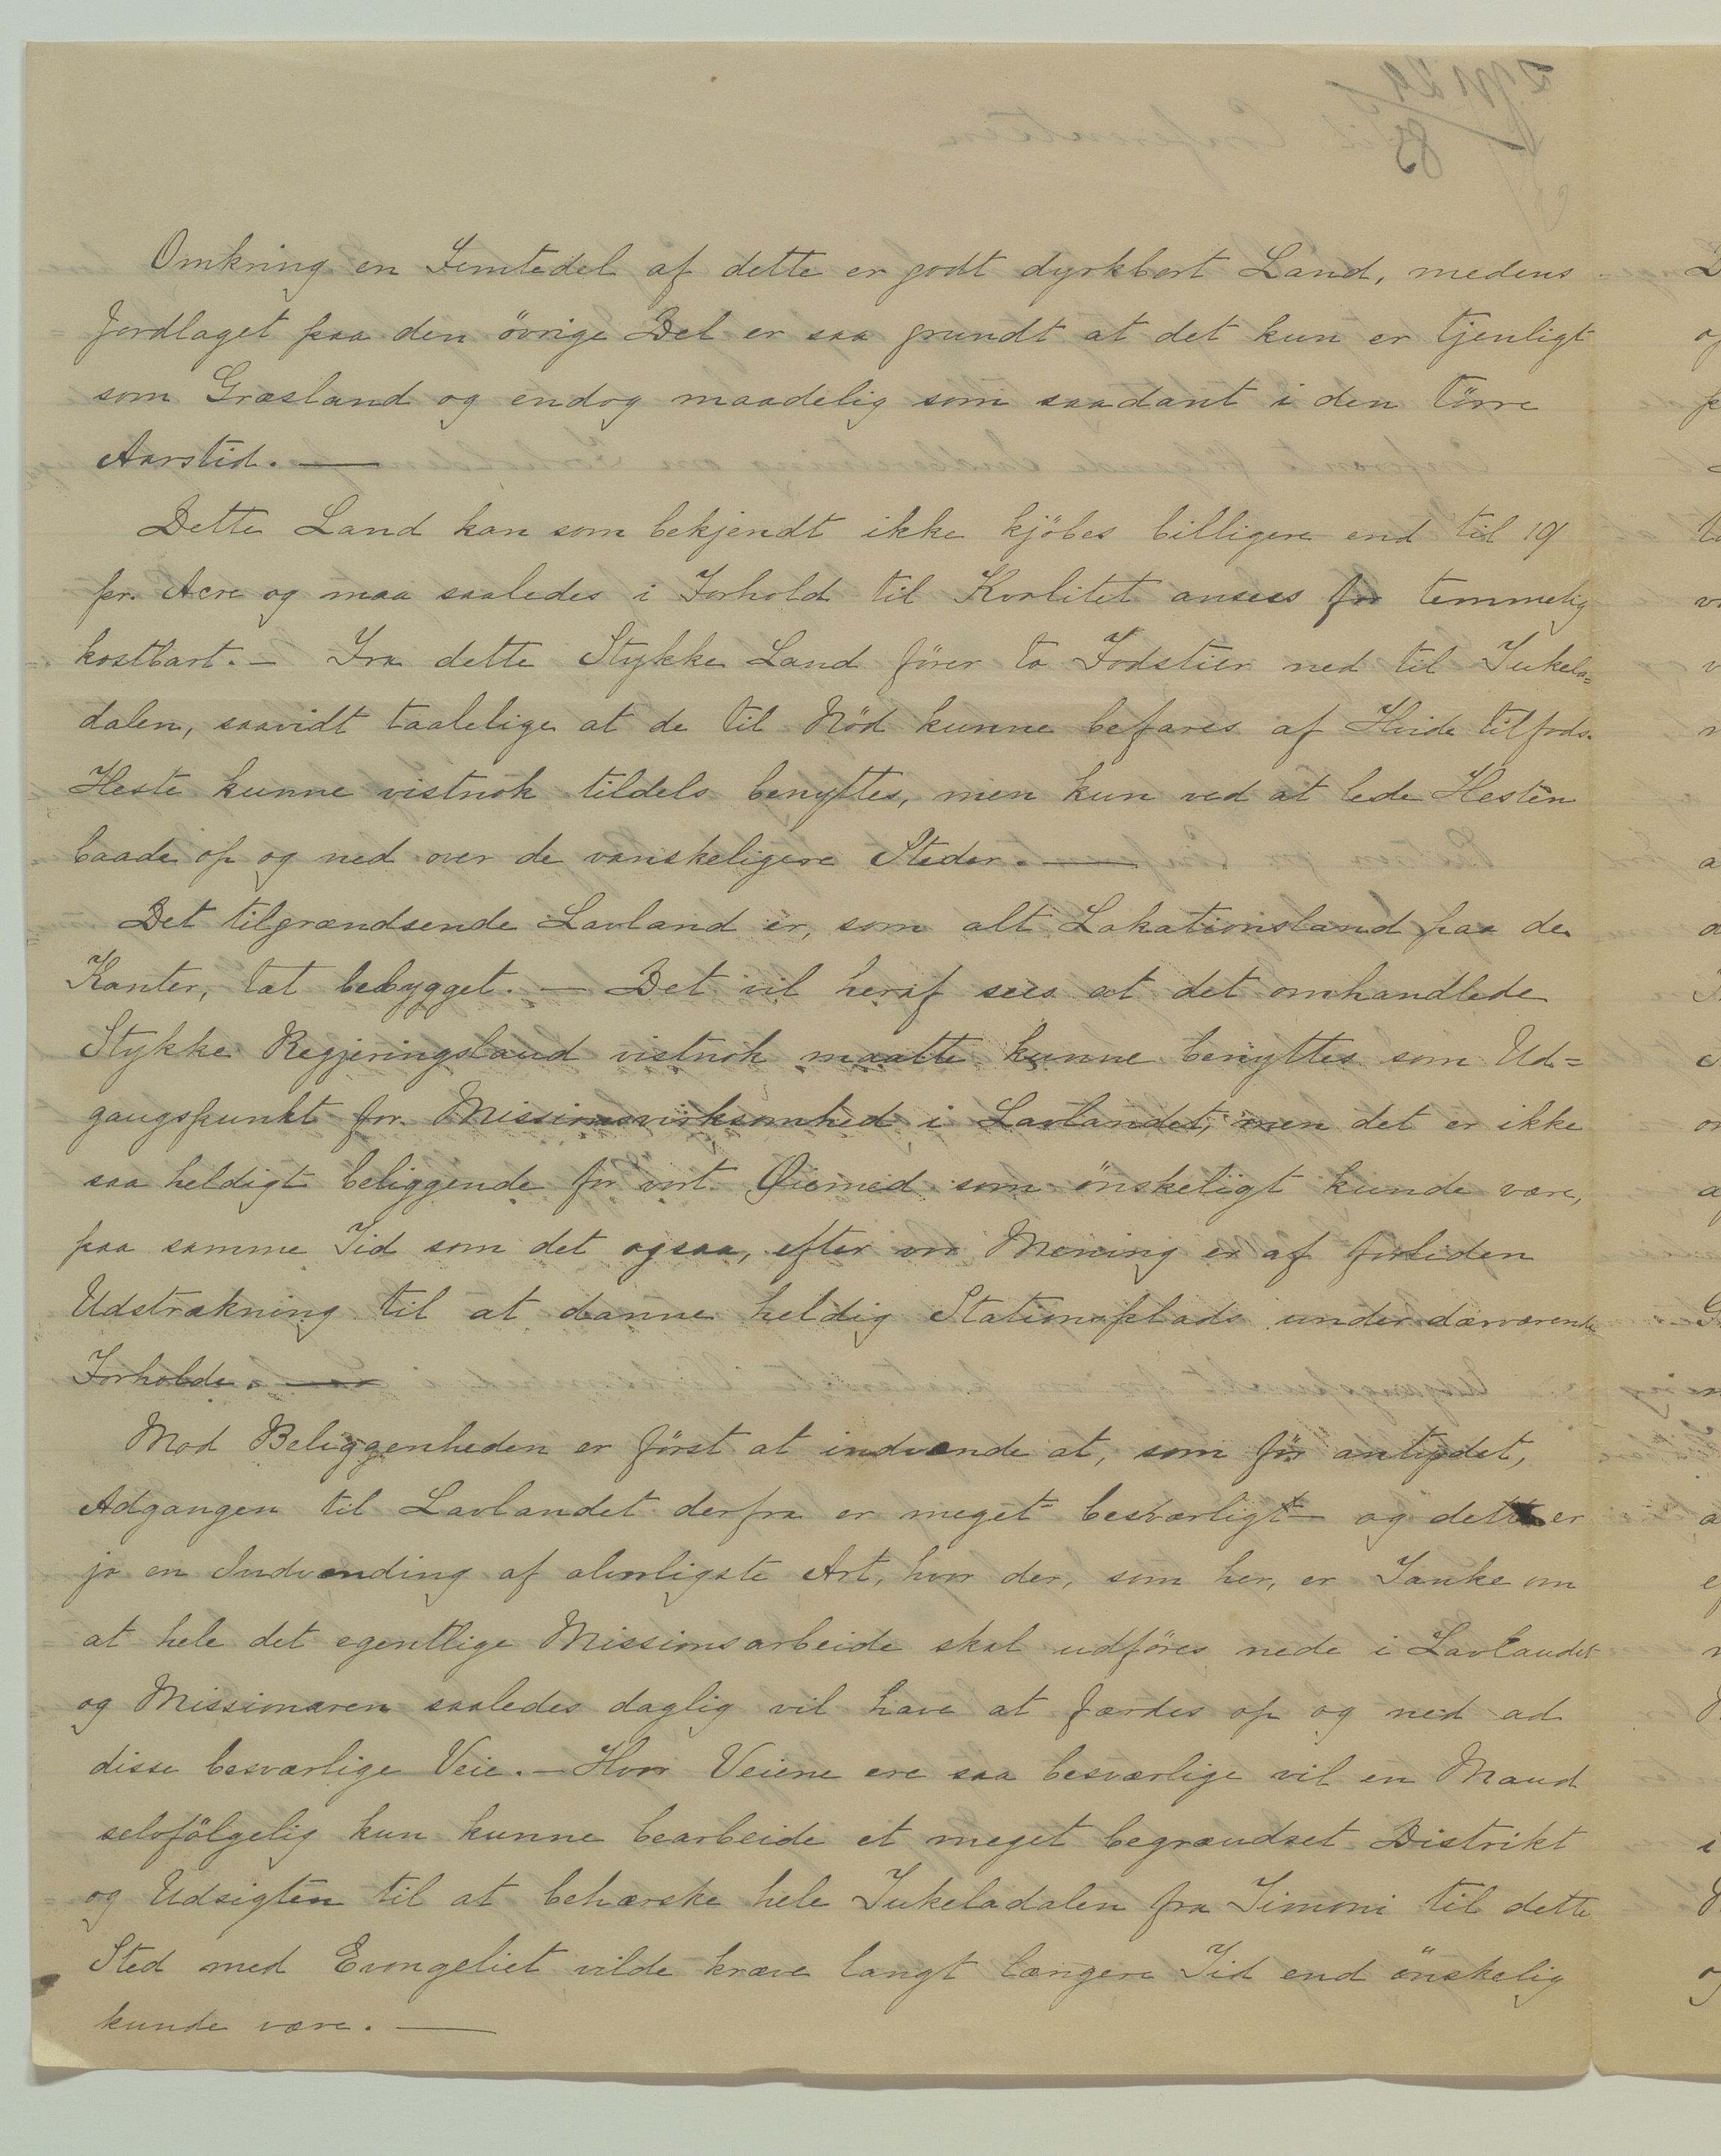 Omkring en Femtedel af dette er godt dyrkbart Land, medens
Jordlaget paa den övrige Del er saa grundt at det kun er tjenligt
som Græsland og endog maadelig som saadant i den törre
Aarstid. —
Dette Land kan som bekjendt ikke kjöbes billigere end til 10/
pr. Acre og maa saaledes i Forhold til Kvalitet ansees for temmelig
kostbart. — Fra dette Stykke Land förer to Fodstier ned til Tukela=
dalen, saavidt taalelige at de til Nöd kunne befares af Hvide tilfods.
Heste kunne vistnok tildels benyttes, men kun ved at lede Hesten
baade op og ned over de vanskeligere Steder. —
Det tilgrændsende Lavland er, som alt Lokationsland paa de
Kanter, tæt bebygget. — Det vil heraf sees at det omhandlede
Stykke Regjeringsland vistnok maatte kunne benyttes som Ud=
gangspunkt for Missionsvirksomhed i Lavlandet, men det er ikke
saa heldigt beliggende for vort Øiemed som önskeligt kunde være,
paa samme Tid som det ogsaa, efter vor Mening er af forliden
Udstrækning til at danne heldig Stationsplads under derværende
Forholde. —
Mod Beliggenheden er först at indvende at, som för antydet,
Adgangen til Lavlandet derfra er meget besværligt — og dette er
jo en Indvending af alvorligste Art, hvor der, som her, er Tanke om
at hele det egentlige Missionsarbeide skal udföres nede i Lavlandet
og Missionæren saaledes daglig vil have at færdes op og ned ad
disse besværlige Veie. — Hvor Veiene ere saa besværlige vil en Mand
selvfölgelig kun kunne bearbeide et meget begrændset Distrikt
og Udsigten til at beherske hele Tukeladalen fra Timoni til dette
Sted med Evangeliet vilde kræve langt længere Tid end önskelig
kunde være. —